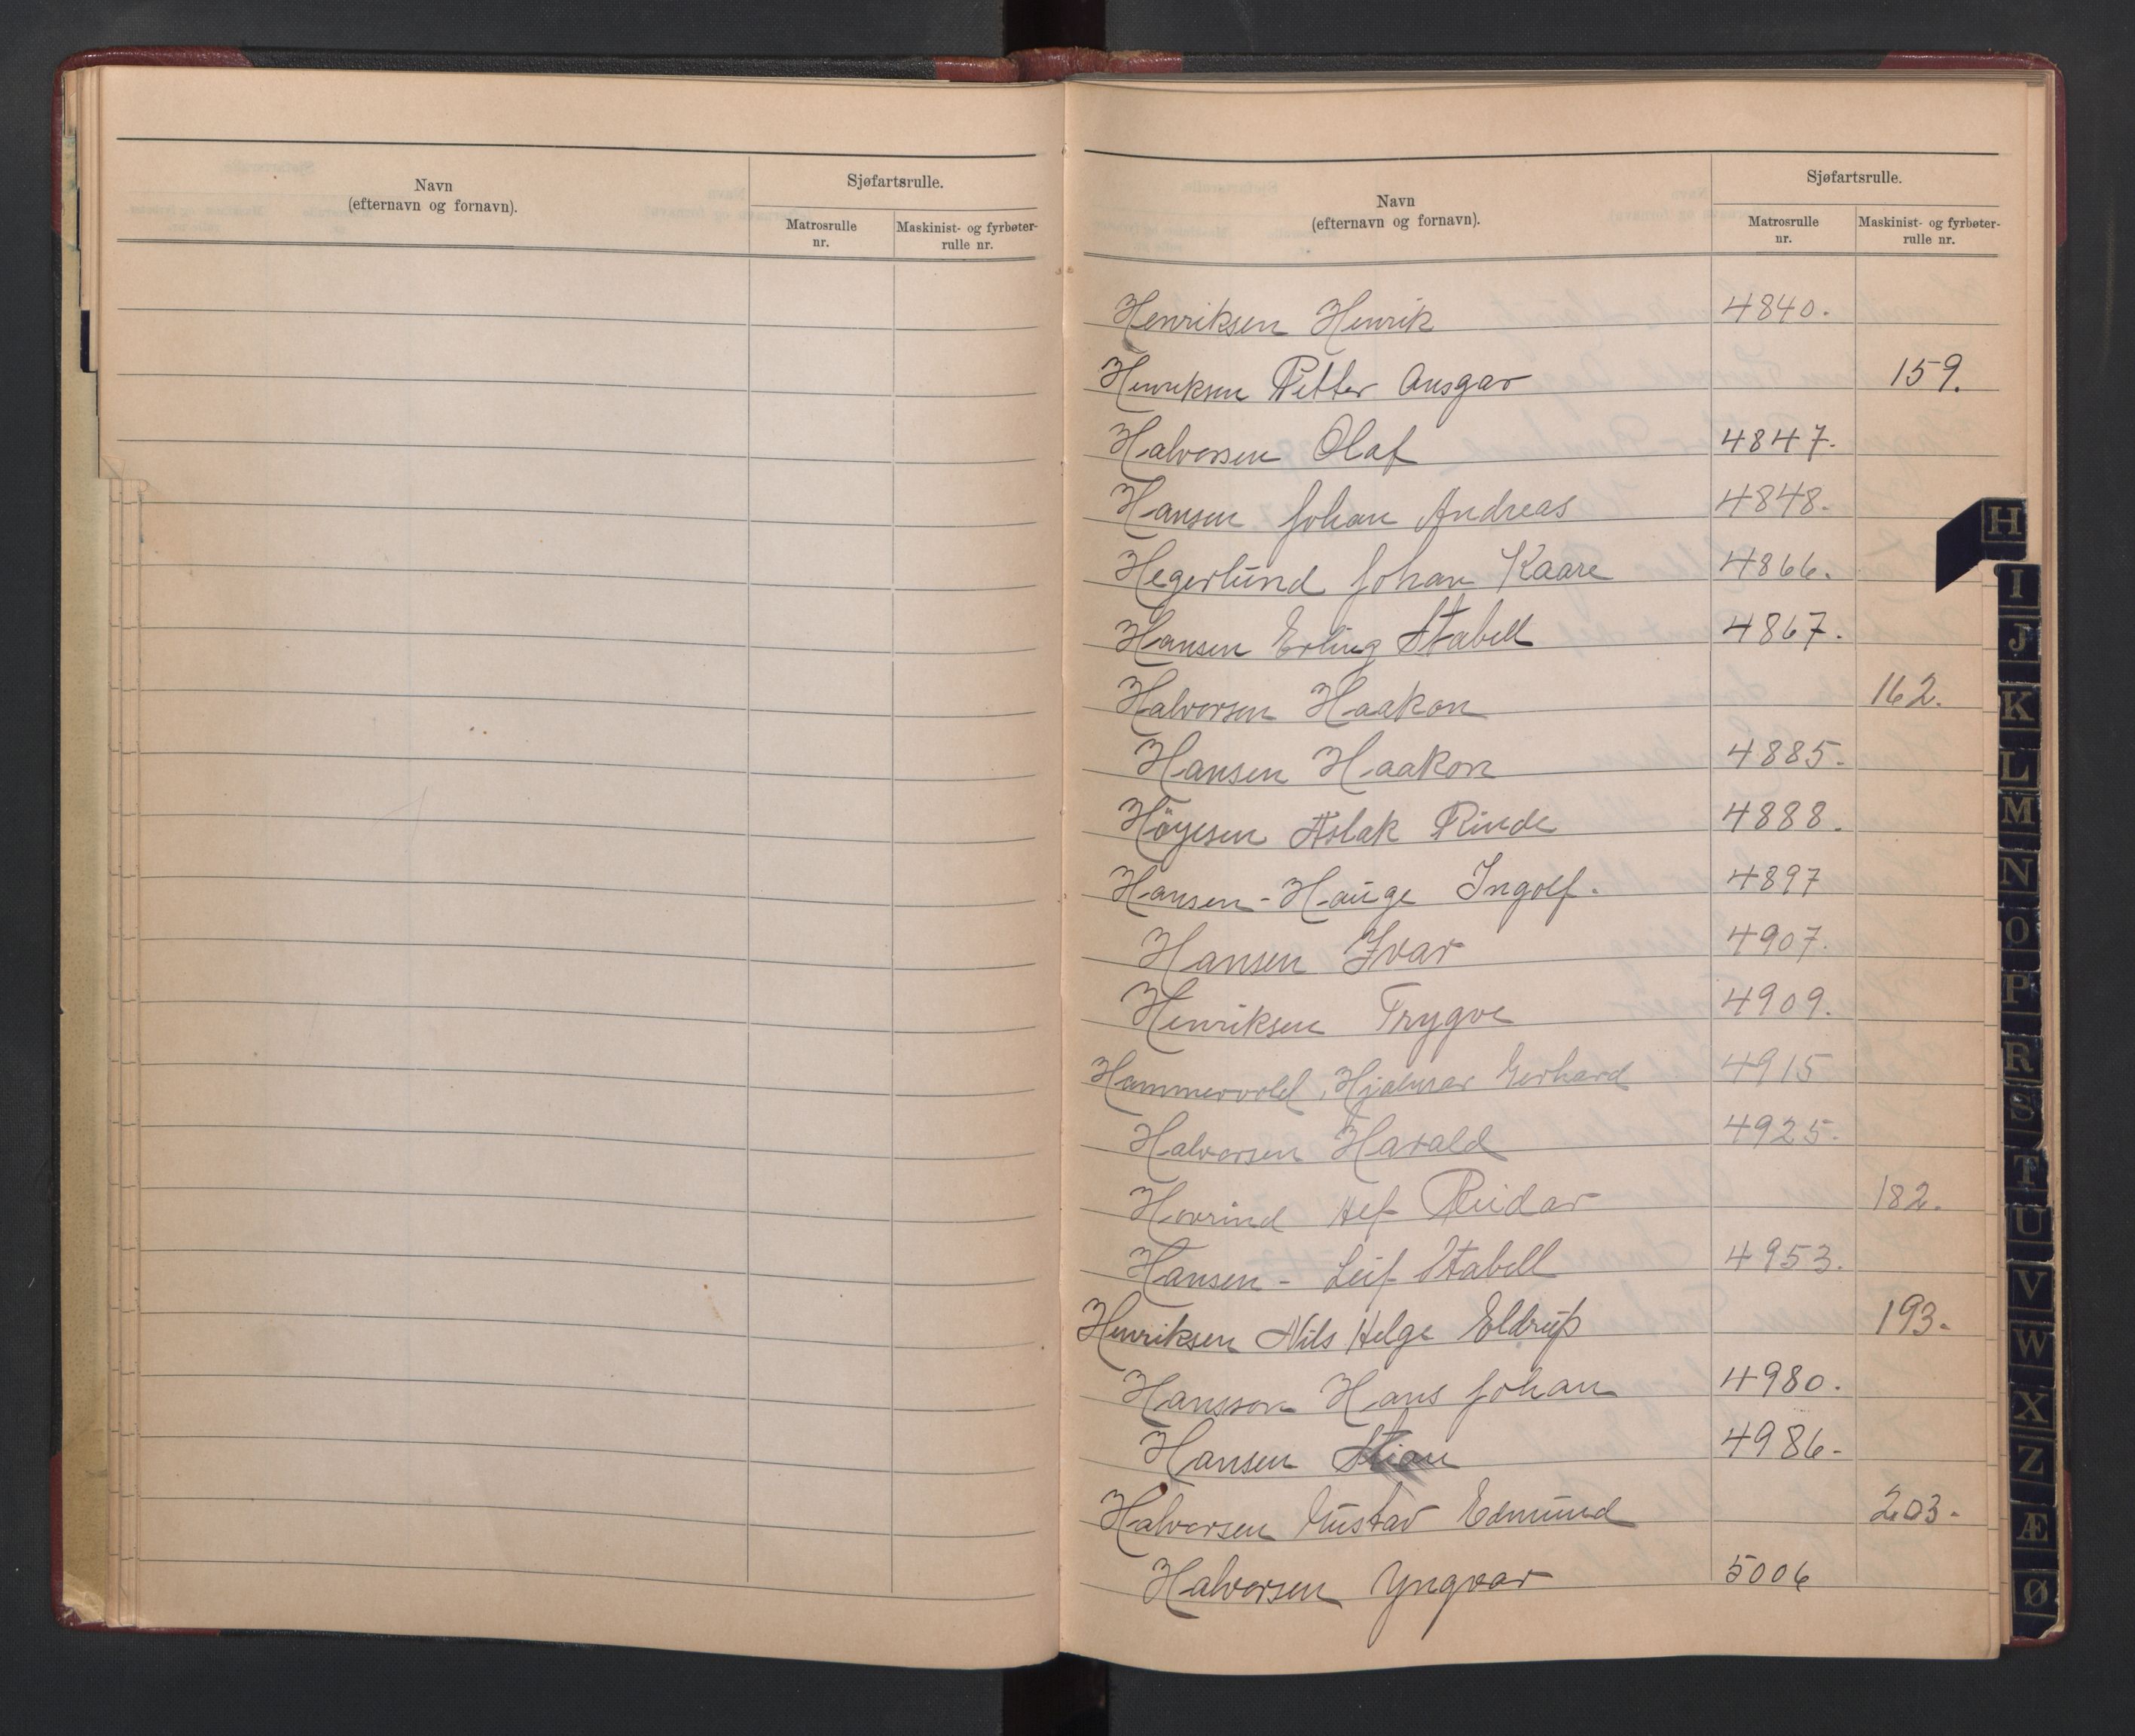 Navn
(efternavn og fornavn).
Sjøfartsrulle.
Matrosrulle
nr.
Maskinist- og fyrbøter-
rulle nr.
Navn
(efternavn og fornavn).
Sjøfartsrulle.
Matrosrulle
nr.
Maskinist- og fyrbøter-
rulle nr.
Henriksen Henrik 4840.
Henriksen Petter Ansgar 159.
Halvorsen Olaf 4847.
Hansen Johan Andreas 4848.
Hegerlund Johan Kaare 4866.
Hansen Erling Stabell 4867.
Halvorsen Haakon 162.
Hansen Haakon 4885.
Höyesen Aslak Rinde 4888.
Hansen-Hauge Ingolf. 4897
Hansen Ivar 4907.
Henriksen Trygve 4909.
Hammervold, Hjalmar Gerhard 4915
Halvorsen Harald 4925.
Hovrind Reidar 182.
Hansen - Leif Stabell 4953.
Henriksen Nils Helge Eldrup 193.
Hansson Hans Johan 4980.
Hansen Stian 4986-
Halvorsen Gustav Edmund 203.
Halvorsen Yngvar 5006
H
I
J
K
L
M
N
O
P
R
S
T
U
V
W
X
Z
Æ
Ø